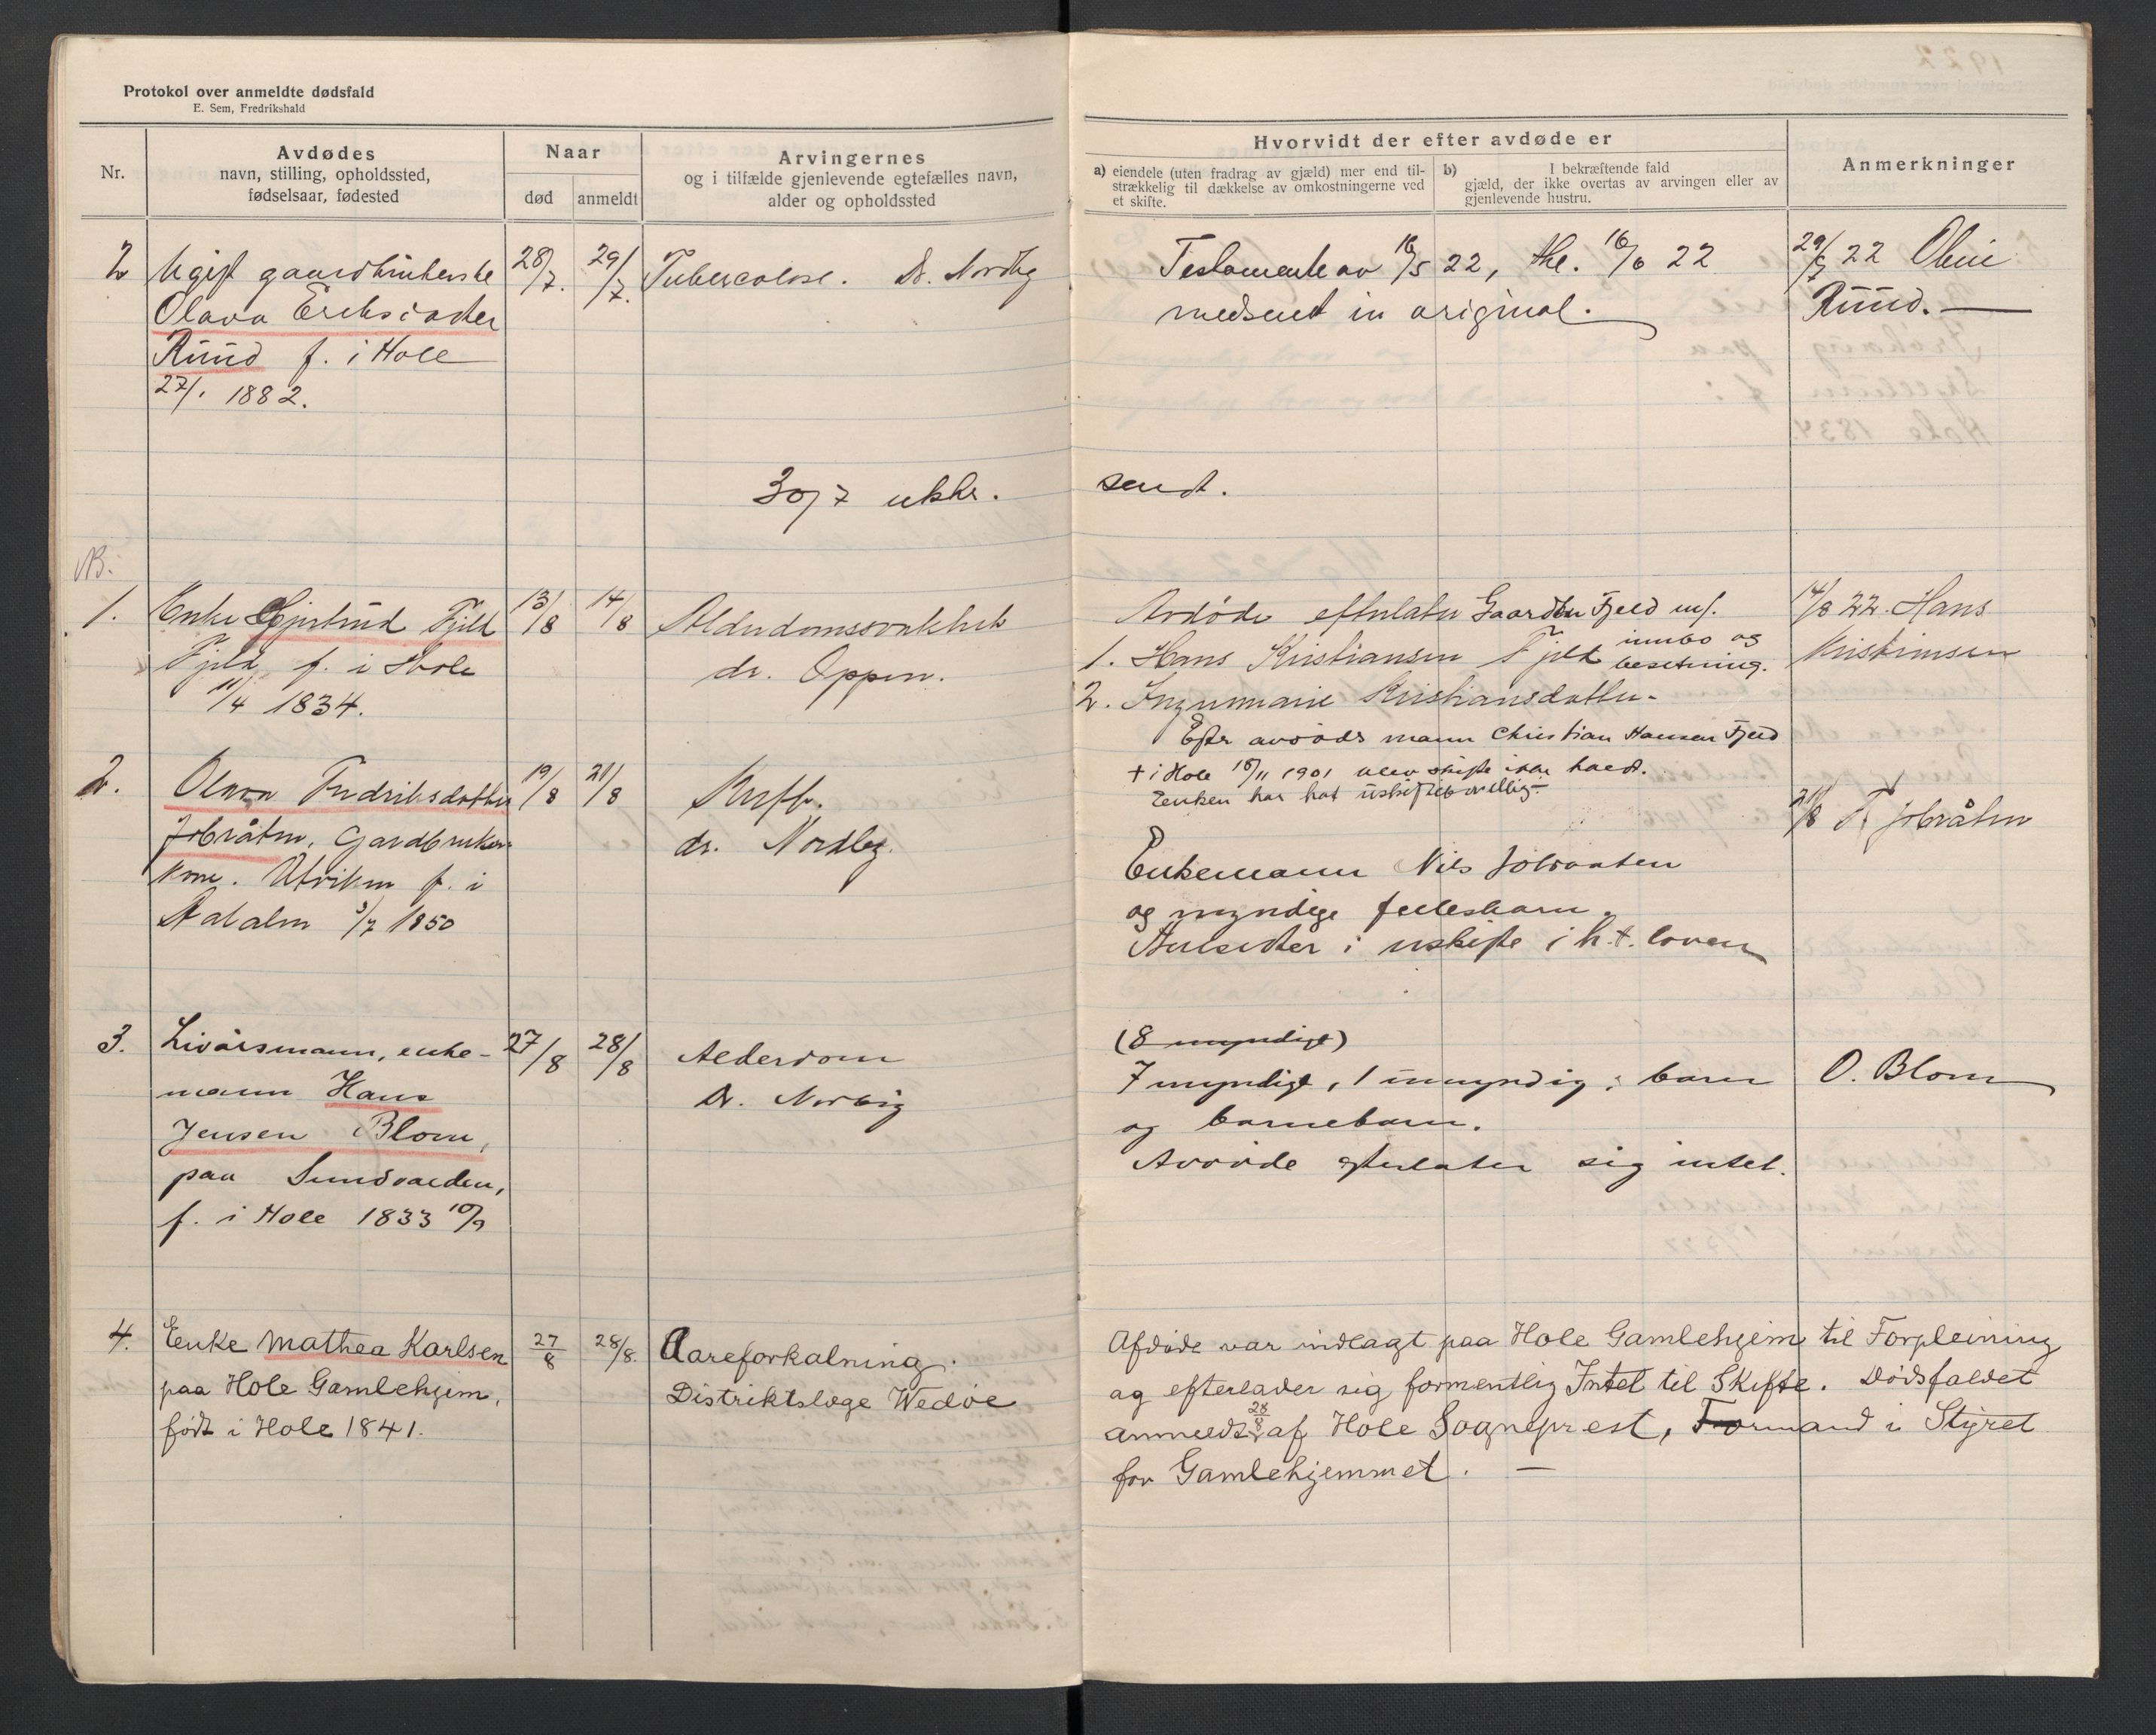 Protokol over anmeldte dødsfald
E. Sem, Fredrikshald
Nr.
Avdødes
navn, stilling, opholdssted,
fødselsaar, fødested
Naar
død
anmeldt
Arvingernes
og i tilfælde gjenlevende egtefælles navn,
alder og opholdssted
Hvorvidt der efter avdøde er
a) eiendele (uten fradrag av gjæld) mer end til-
strækkelig til dækkelse av omkostningerne ved
et skifte.
b) I bekræftende fald
gjæld, der ikke overtas av arvingen eller av
gjenlevende hustru.
Anmerkninger
2 Ugift gaardbrukerske 28/7. 29/7. Tuberculose. Dr. Nordby
Olava Eriksdatter
Ruud f. i Hole
27/1. 1882.
Testamente av 16/5 22, 16/6 22
medsent in original.
29/7 22 Oluie
Ruud. —
30/7 utskr. sendt.
NB.
1. Enke Gjertrud Fjeld 13/8 14/8 Alderdomssvakhet
Fjeld f. i Hole dr. Oppen.
11/4 1834.
Avdøde efterlater Gaarden Fjeld m/.
1. Hans Kristiansen Fjeld innbo og
besetning.
2. Kristiansdatter.
Efter avdøds mann Christian Hansen Fjeld
† i Hole 18/11 1901 blev skifte ikke holdt.
Enken har hat uskiftebevilling.
14/8 22. Hans
Kristiansen
2. Olava Fredriksdatter 19/8 21/8 Kreft.
Jobråten, Gardbruker- dr. Nordby.
kone. Utviken f. i
Aadalen 3/7 1850
Enkemann Nils Jobraaten
og myndige fellesbarn.
Hensidter i uskifte i h.t. loven
21/8 F Jobråten
3. Livårsmann, enke- 27/8 28/8 Alderdom
mann Hans Dr. Nordby
Jensen Blom,
paa Sundvolden,
f. i Hole 1833 10/9
(8 myndige)
7 myndige, 1 umyndig; barn
og barnebarn.
Avdøde efterlater sig intet.
O. Blom
4. Enke Mathea Karlsen 27/8 28/8. Aareforkalkning.
paa Hole Gamlehjem, Distriktslæge Wedøe
født i Hole 1841.
Afdøde var indlagt paa Hole Gamlehjem til Forpleining
og efterlader sig formentlig Intet til Skifte. Dødsfaldet
anmeldt 28/8 af Hole Sogneprest, Formand i Styret
for Gamlehjemmet. —